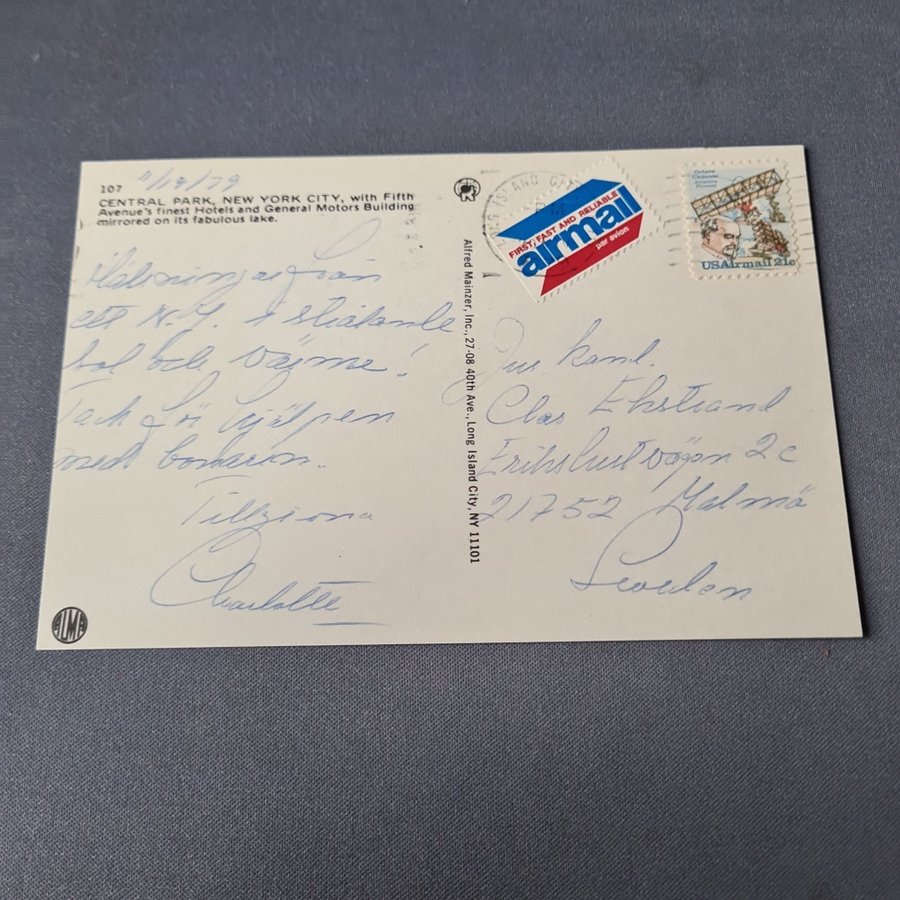 107 11/13/79
CENTRAL PARK, NEW YORK CITY, with Fifth
Avenue's finest Hotels and General Motors Building
mirrored on its fabulous lake.
Hälsningar från
ett N.Y. i strålande
sol och värme!
Tack för hjälpen
med
Tillgivna
Charlotte
Alfred Mainzer, Inc., 27-08 40th Ave., Long Island City, NY 11101
LONG ISLAND CITY
FIRST, FAST AND RELIABLE
airmail
par avion
Octave
Chanute
Aviation
Pioneer
USAirmail 21c
Jur. kand.
Clas Ekstrand
Erikslustvägen 2c
21752 Malmö
Sweden